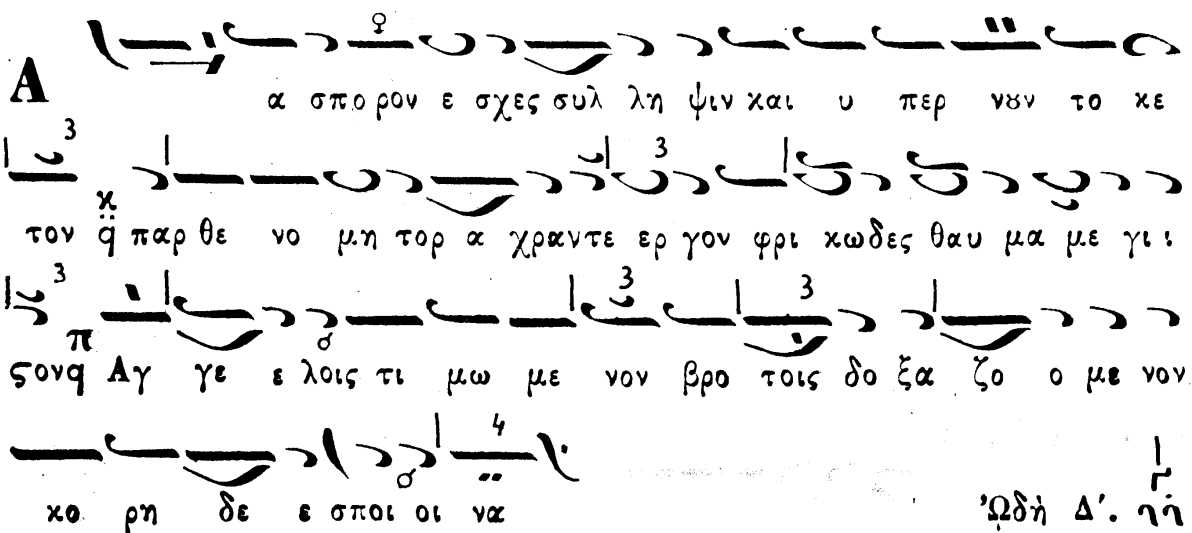 Α α σπο ρον ε σχες συλ λη ψιν και υ περ νȣν το κε
τον q̈ παρ θε νο μη τορ α χραντε ερ γον φρι κωδες θαυ μα με γι ι
ϛον q Αγ γε ε λοις τι μω με νον βρο τοις δο ξα ζο ο με νον
κο ρη δε ε σποι οι να Ὠδὴ Δ´.